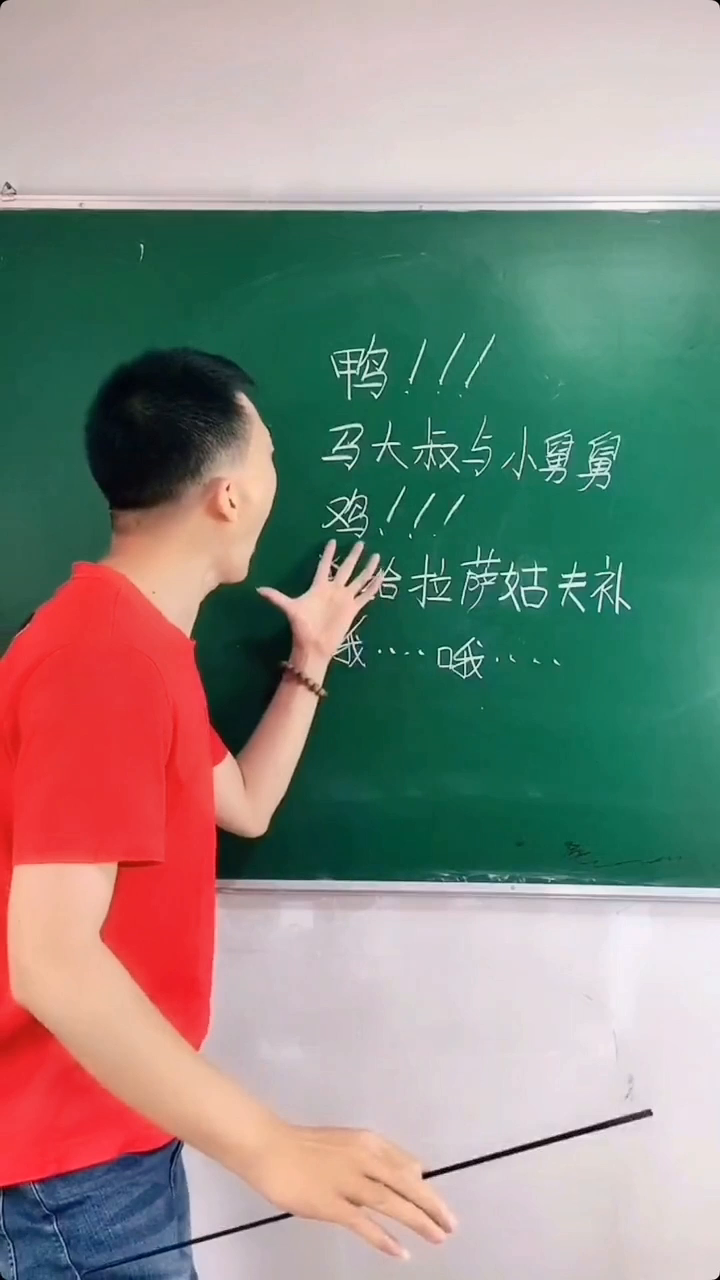 鸭!!!
马大叔与小舅舅
鸡!!!
哈拉萨姑夫补
哦····哦·····